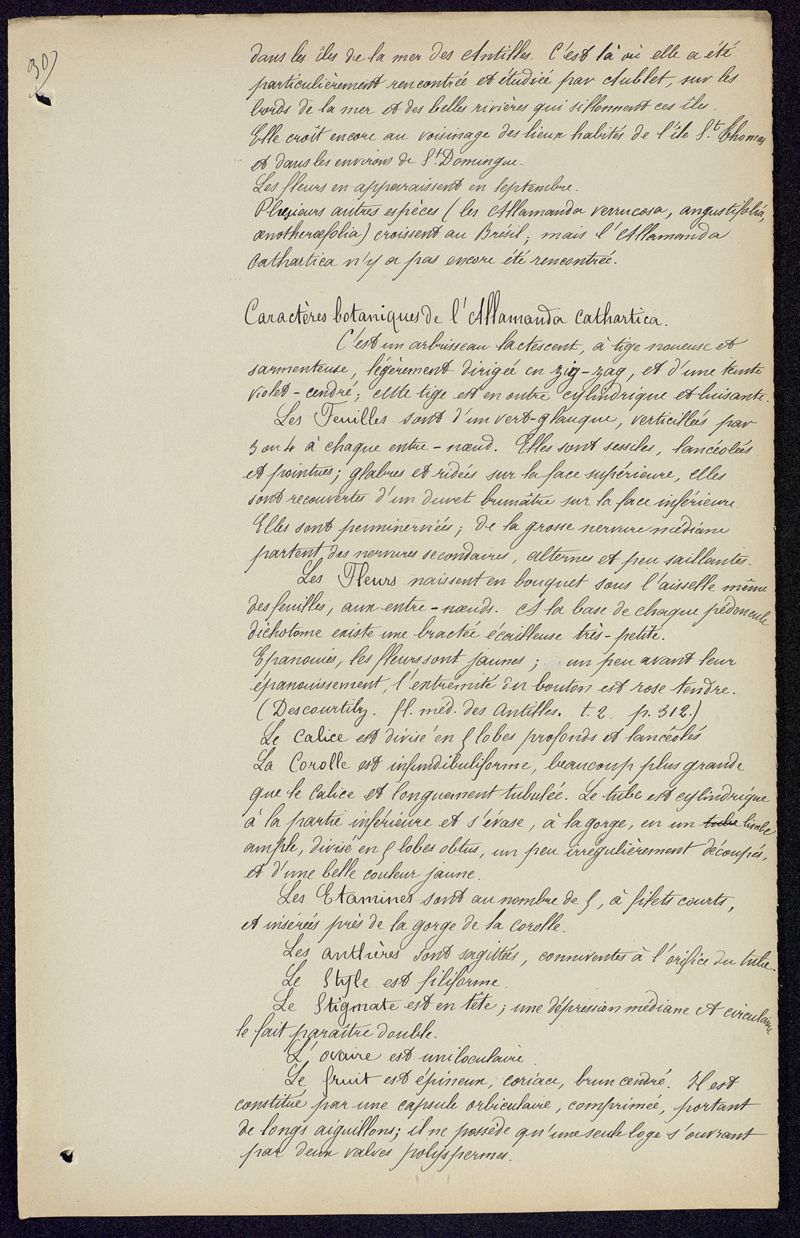 30)
dans les îles de la mer des Antilles. C'est là où elle a été
particulièrement rencontrée et étudiée par Aublet, sur les
bords de la mer et des belles rivières qui sillonnent ces îles.
Elle croît encore au voisinage des lieux habités de l'île St. Thomas
et dans les environs de St Domingue.
Les fleurs en apparaissent en Septembre.
Plusieurs autres espèces (les Allamanda verrucosa, angustifolia,
œnotheræfolia) croissent au Brésil; mais l'Allamanda
Cathartica n'y a pas encore été rencontrée.
Caractères botaniques de l'Allamanda Cathartica.
C'est un arbrisseau lactescent, à tige noueuse et
sarmenteuse, légèrement dirigée en zig-zag, et d'une teinte
violet-cendré; cette tige est en outre cylindrique et luisante.
Les Feuilles sont d'un vert-glauque, verticillées par
3 ou 4 à chaque entre-nœud. Elles sont sessiles, lancéolées
et pointues; glabres et ridées sur la face supérieure, elles
sont recouvertes d'un duvet brunâtre sur la face inférieure.
Elles sont penninerviées; de la grosse nervure médiane
partent des nervures secondaires, alternes et peu saillantes.
Les Fleurs naissent en bouquet sous l'aisselle même
des feuilles, aux entre-nœuds. A la base de chaque pédoncule
dichotome existe une bractée écailleuse très-petite.
Epanouies, les fleurs sont jaunes; un peu avant leur
épanouissement, l'extrémité du bouton est rose tendre.
(Descourtilz. fl. méd. des Antilles. t. 2. p. 312.)
Le Calice est divisé en 5 lobes profonds et lancéolés
La Corolle est infundibuliforme, beaucoup plus grande
que le Calice et longuement tubulée. Le tube est cylindrique
à la partie inférieure et s'évase, à la gorge, en un tube limbe
ample, divisé en 5 lobes obtus, un peu irrégulièrement découpés,
et d'une belle couleur jaune.
Les Etamines sont au nombre de 5, à filets courts,
et insérées près de la gorge de la Corolle.
Les anthères sont sagittées, conniventes à l'orifice du tube.
Le Style est filiforme.
Le Stigmate est en tête; une dépression médiane et circulaire
le fait paraître double.
L'ovaire est uniloculaire.
Le fruit est épineux, coriace, brun cendré. Il est
constitué par une capsule orbiculaire, comprimée, portant
de longs aiguillons; il ne possède qu'une seule loge s'ouvrant
par deux valves polyspermes.